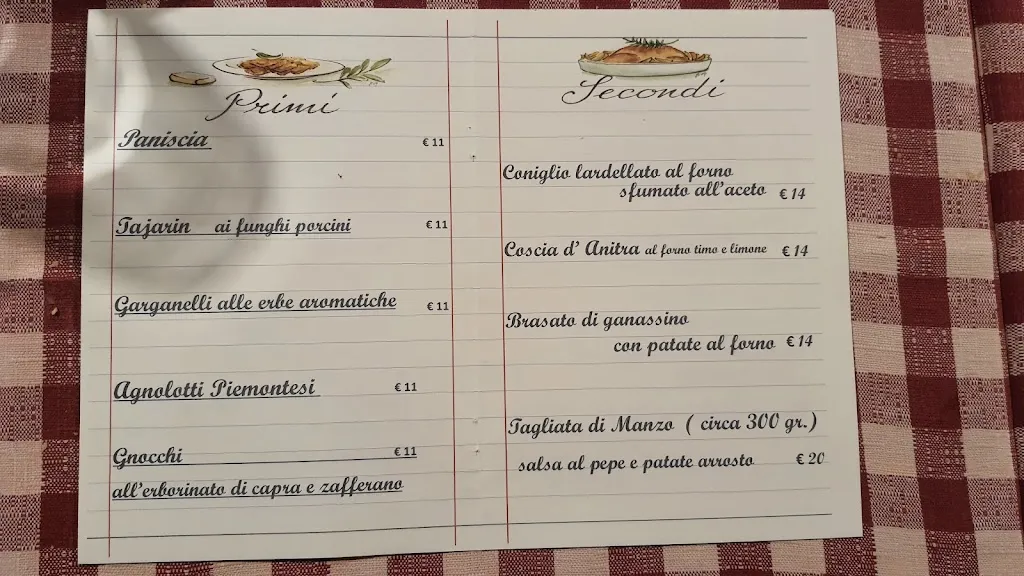 Primi
Paniscia € 11
Tajarin ai funghi porcini € 11
Garganelli alle erbe aromatiche € 11
Agnolotti Piemontesi € 11
Gnocchi € 11
all'erborinato di capra e zafferano
Secondi
Coniglio lardellato al forno
sfumato all'aceto € 14
Coscia d' Anitra al forno timo e limone € 14
Brasato di ganassino
con patate al forno € 14
Tagliata di Manzo ( circa 300 gr.)
salsa al pepe e patate arrosto € 20